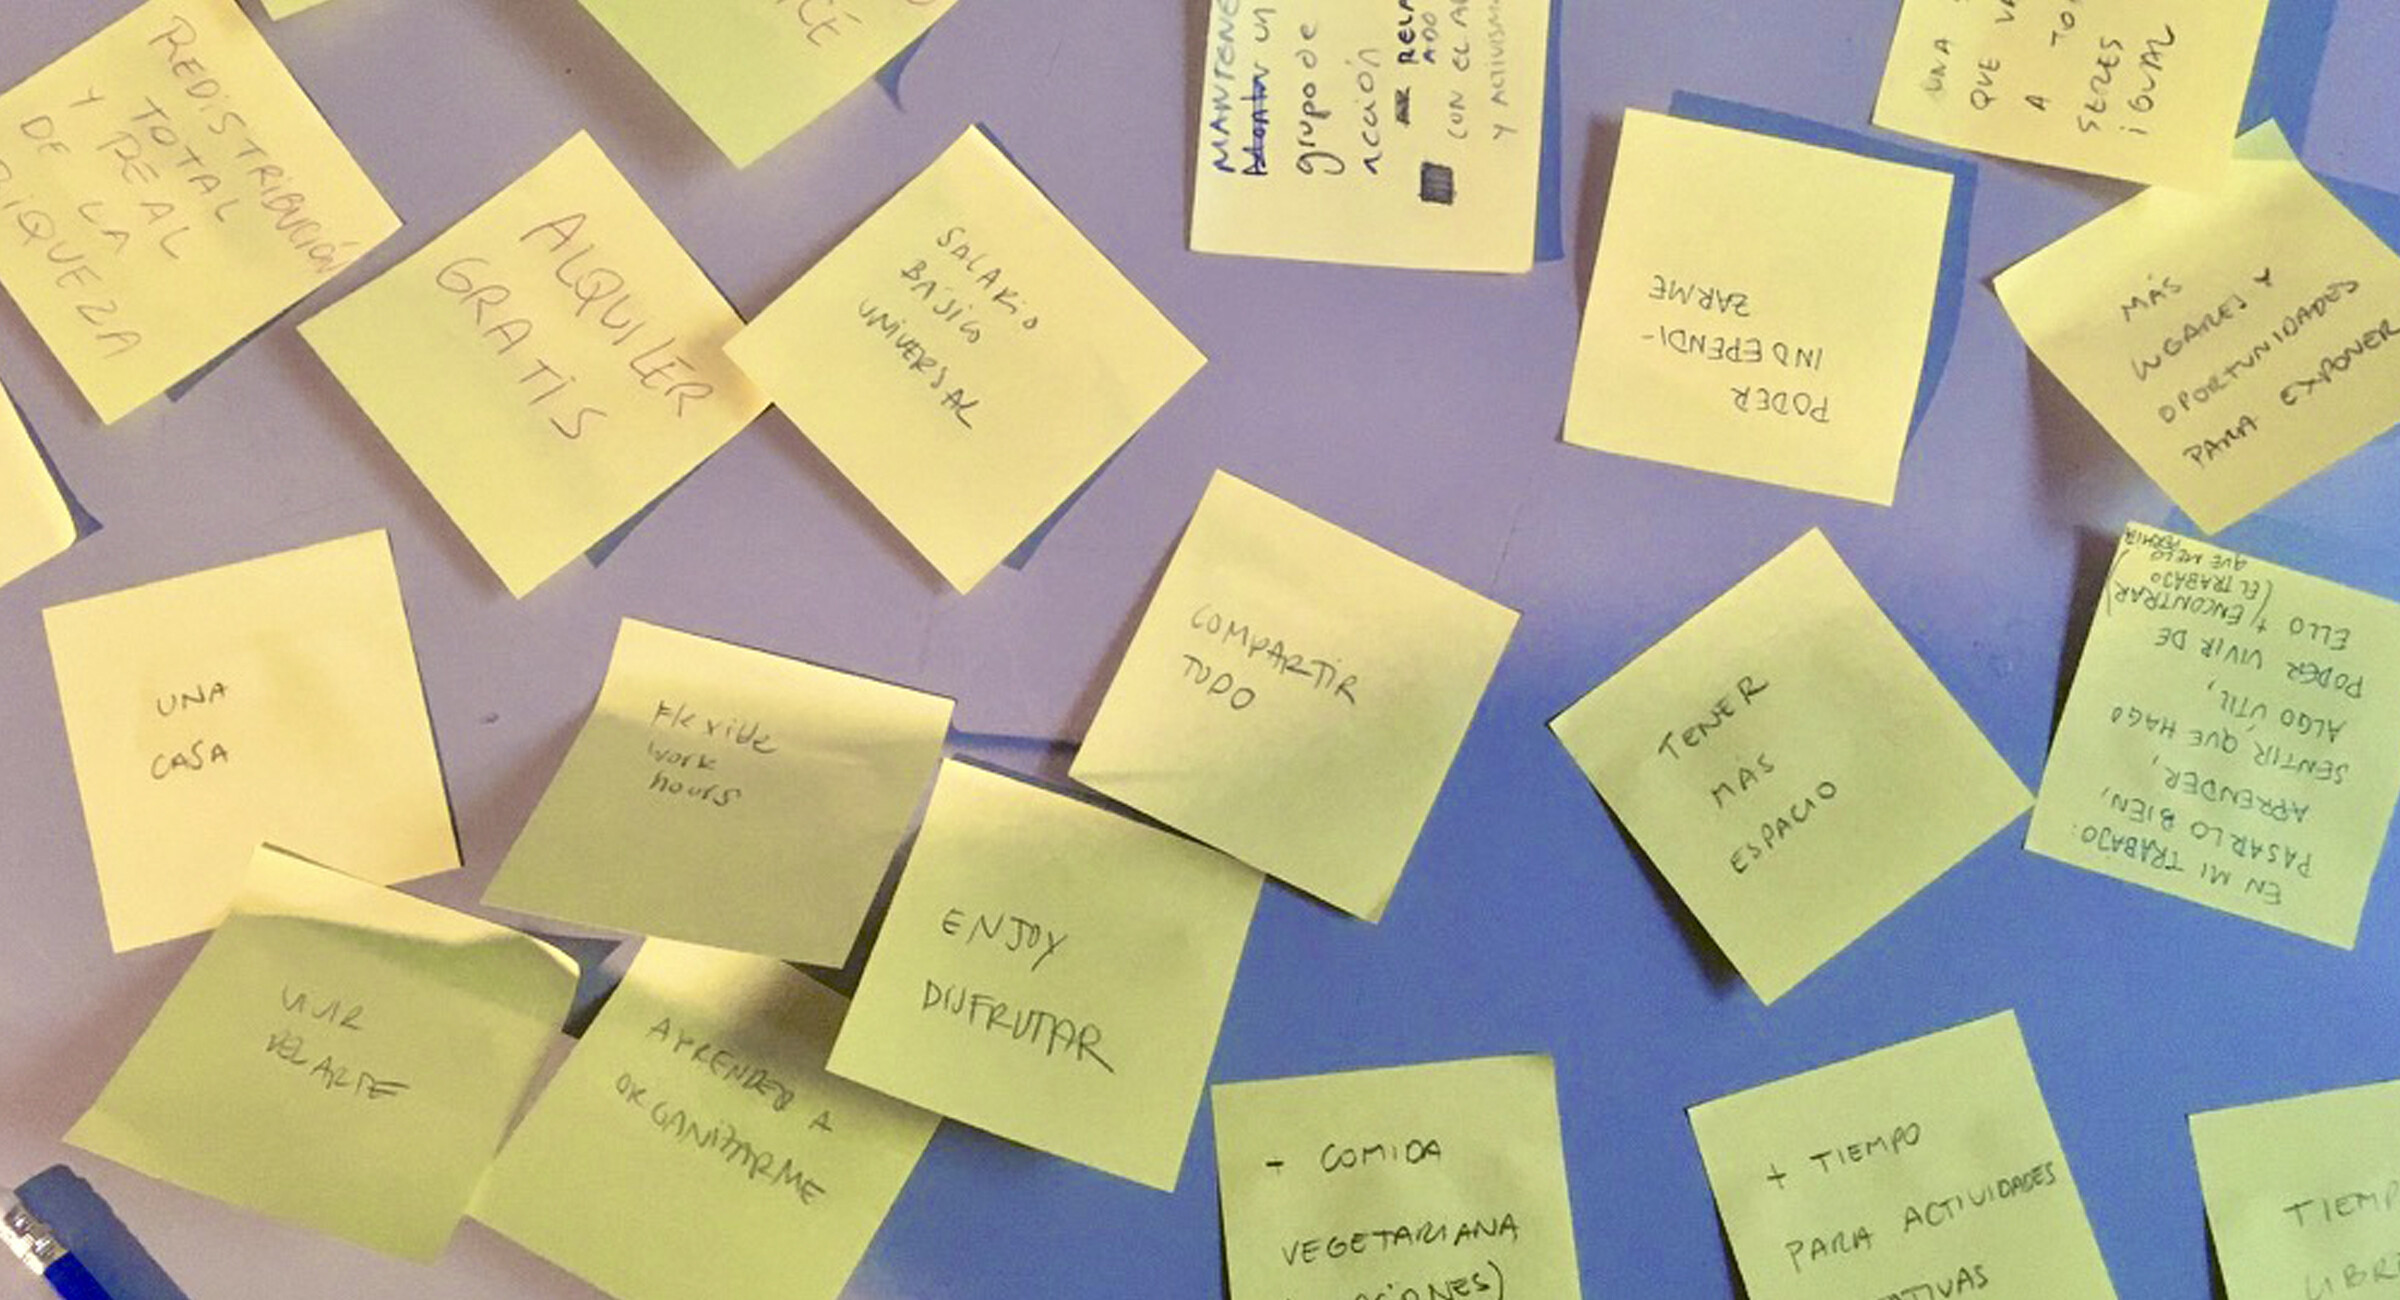 REDISTRIBUCIÓN
TOTAL
Y REAL
DE LA
RIQUEZA
ALQUILER
GRATIS
SALARIO
BÁSICO
UNIVERSAL
MANTENE
grupo de
acción
RELA
ADO
CON EL A
Y ACTIVISM
UNA
QUE VA
A TO
SERES
IGUAL
PODER
INDEPENDI-
ZARME
MÁS
LUGARES Y
OPORTUNIDADES
PARA EXPONER
UNA
CASA
Flexible
work
hours
COMPARTIR
TODO
TENER
MAS
ESPACIO
EN MI TRABAJO:
PASARLO BIEN,
APRENDER,
SENTIR QUE HAGO
ALGO ÚTIL,
PODER VIVIR DE
ELLO Y ENCONTRAR
(EL TRABAJO
QUE ME LO
PERMITA
VIVIR
DEL ARTE
APRENDER A
ORGANIZARME
ENJOY
DISFRUTAR
+ COMIDA
VEGETARIANA
CIONES)
+ TIEMPO
PARA ACTIVIDADES
TIVAS
TIEMP
LIBR